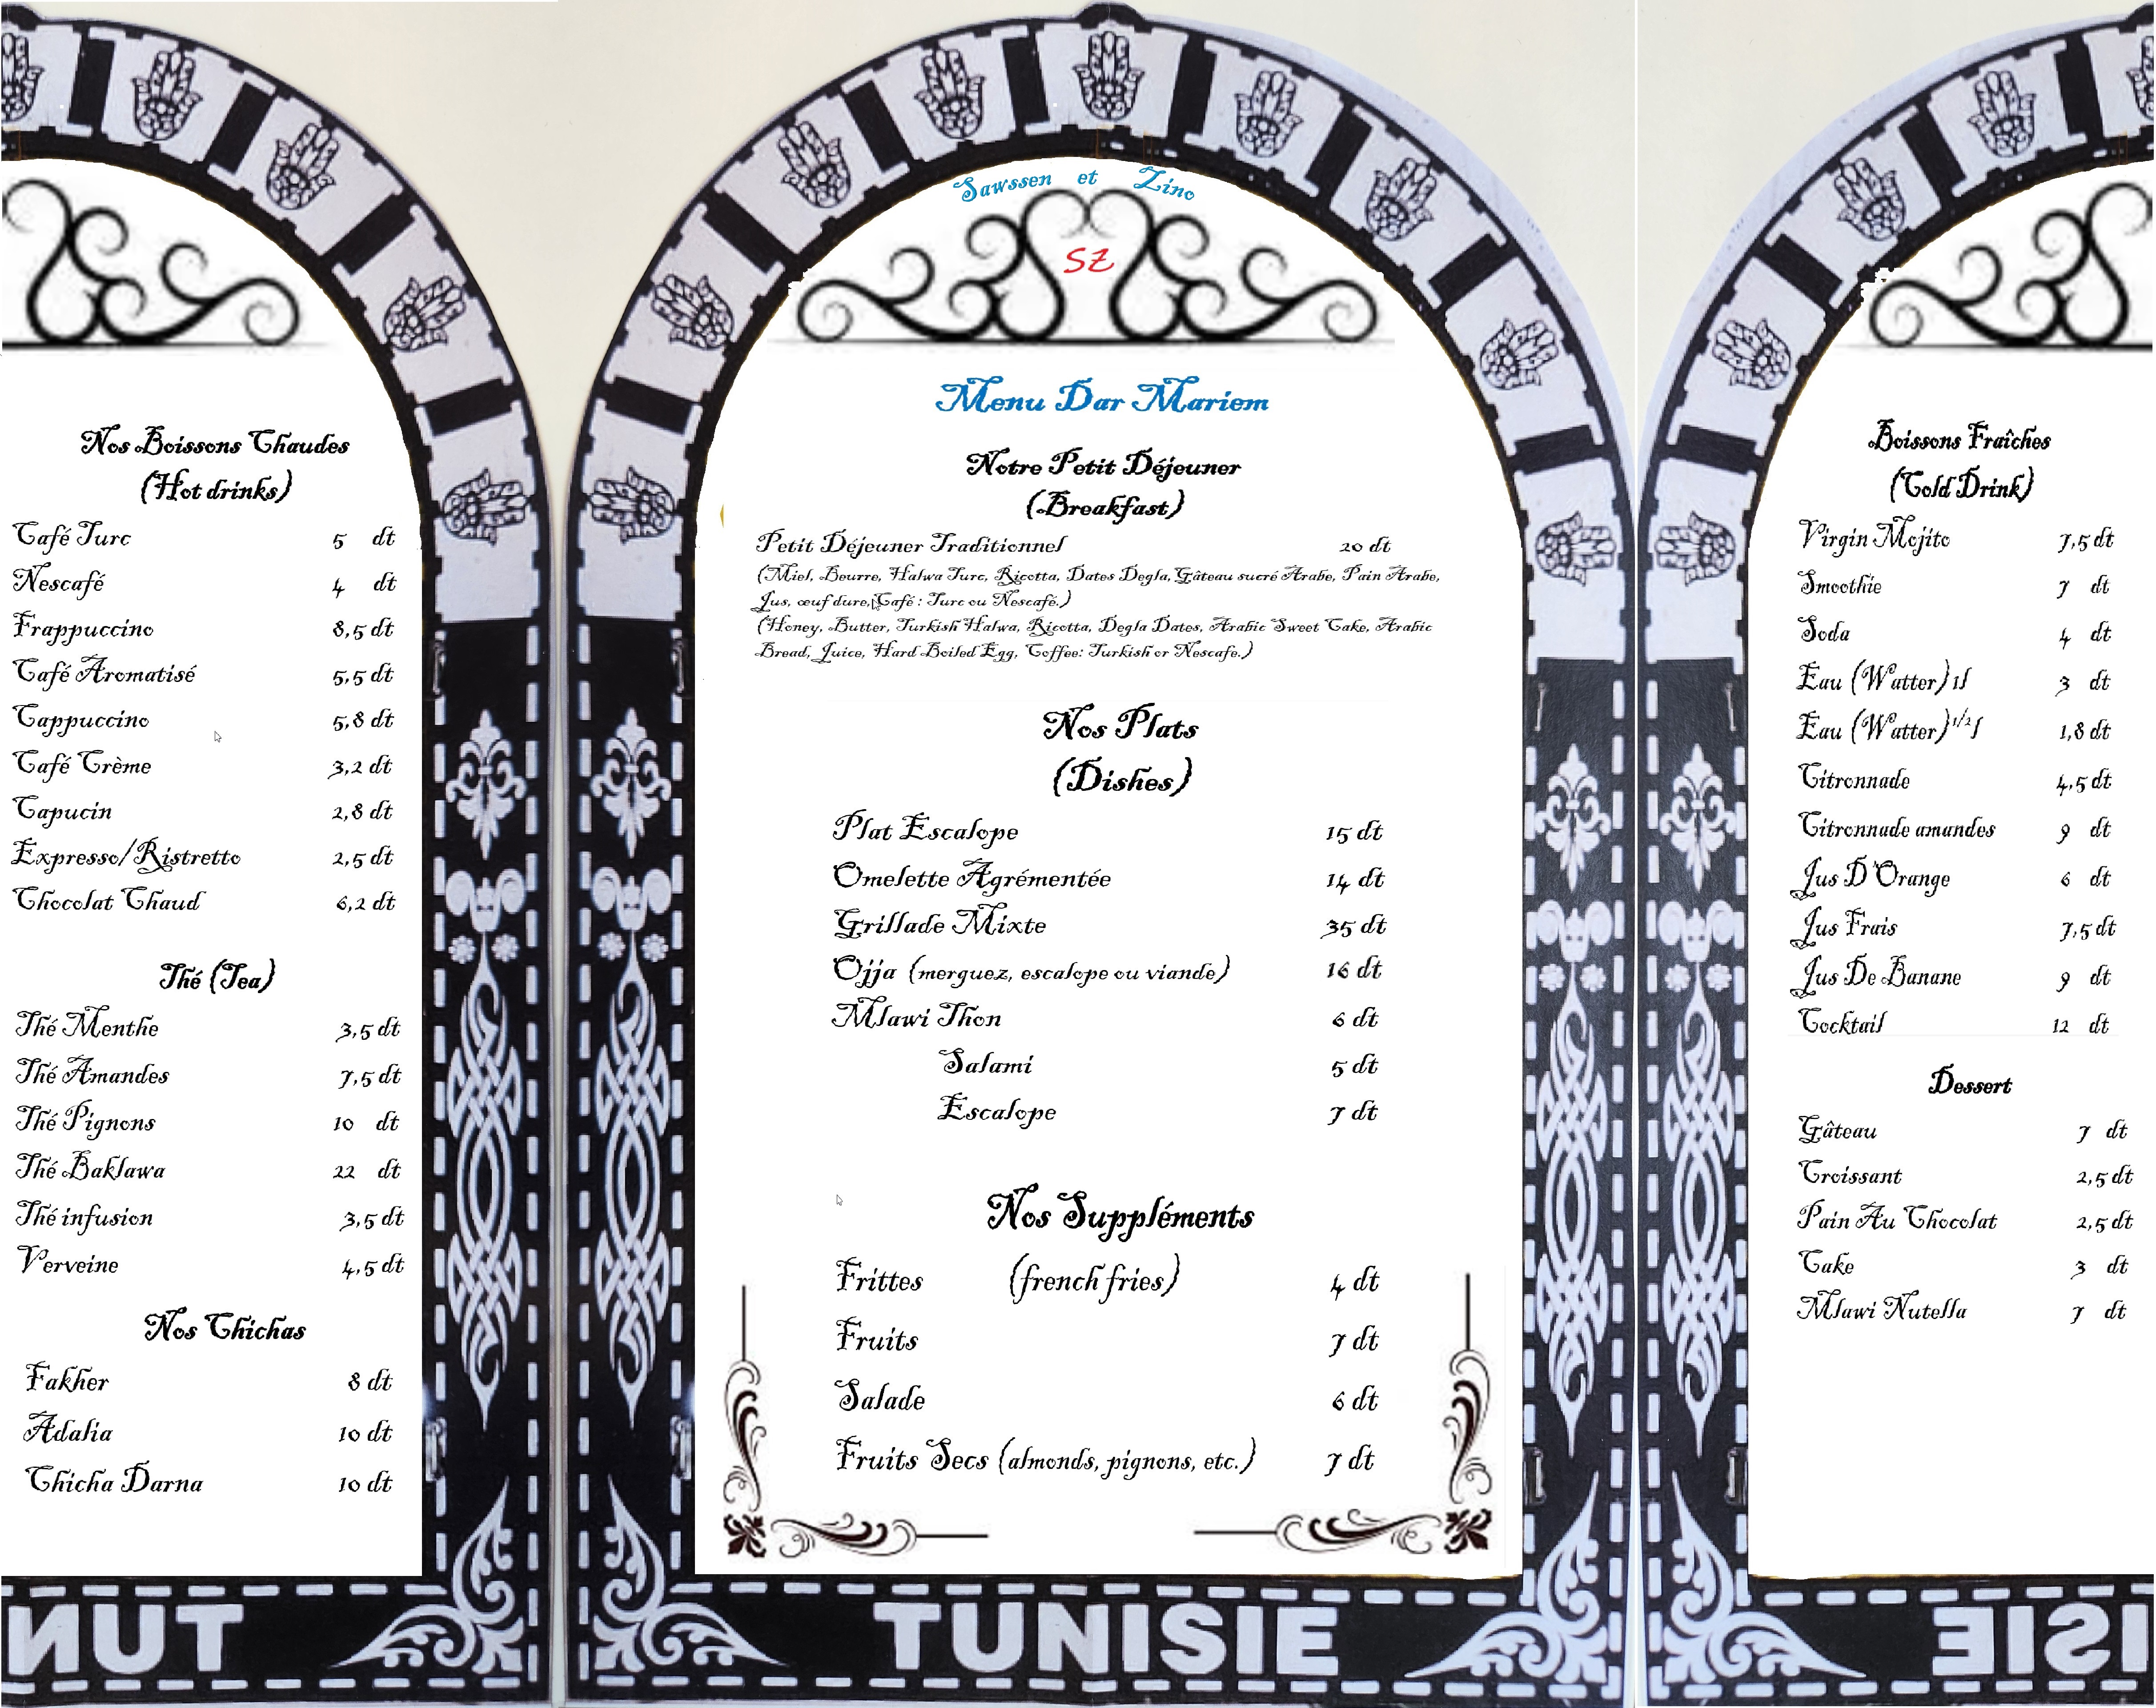 Nos Boissons Chaudes
(Hot drinks)
Café Turc 5 dt
Nescafé 4 dt
Frappuccino 8,5 dt
Café Aromatisé 5,5 dt
Cappuccino 5,8 dt
Café Crème 3,2 dt
Capucin 2,8 dt
Expresso/Ristretto 2,5 dt
Chocolat Chaud 6,2 dt
Thé (Tea)
Thé Menthe 3,5 dt
Thé Amandes 7,5 dt
Thé Pignons 10 dt
Thé Baklawa 22 dt
Thé infusion 3,5 dt
Verveine 4,5 dt
Nos Chichas
Fakher 8 dt
Adalia 10 dt
Chicha Darna 10 dt
TUN
Sawssen et Zino
SZ
Menu Dar Mariem
Notre Petit Déjeuner
(Breakfast)
Petit Déjeuner Traditionnel 20 dt
(Miel, Beurre, Halwa Turc, Ricotta, Dates Degla, Gâteau sucré Arabe, Pain Arabe,
Jus, œuf dure, Café : Turc ou Nescafé.)
(Honey, Butter, Turkish Halwa, Ricotta, Degla Dates, Arabic Sweet Cake, Arabic
Bread, Juice, Hard Boiled Egg, Coffee: Turkish or Nescafe.)
Nos Plats
(Dishes)
Plat Escalope 15 dt
Omelette Agrémentée 14 dt
Grillade Mixte 35 dt
Ojja (merguez, escalope ou viande) 16 dt
Mlawi Thon 6 dt
Salami 5 dt
Escalope 7 dt
Nos Suppléments
Frittes (french fries) 4 dt
Fruits 7 dt
Salade 6 dt
Fruits Secs (almonds, pignons, etc.) 7 dt
TUNISIE
Boissons Fraîches
(Cold Drink)
Virgin Mojito 7,5 dt
Smoothie 7 dt
Soda 4 dt
Eau (Watter) 1l 3 dt
Eau (Watter) 1/2 l 1,8 dt
Citronnade 4,5 dt
Citronnade amandes 9 dt
Jus D'Orange 6 dt
Jus Frais 7,5 dt
Jus De Banane 9 dt
Cocktail 12 dt
Dessert
Gâteau 7 dt
Croissant 2,5 dt
Pain Au Chocolat 2,5 dt
Cake 3 dt
Mlawi Nutella 7 dt
ISIE